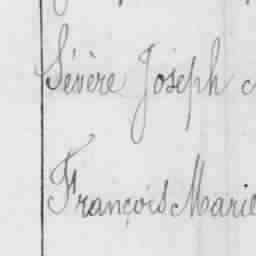 Sévère Joseph
François Marie